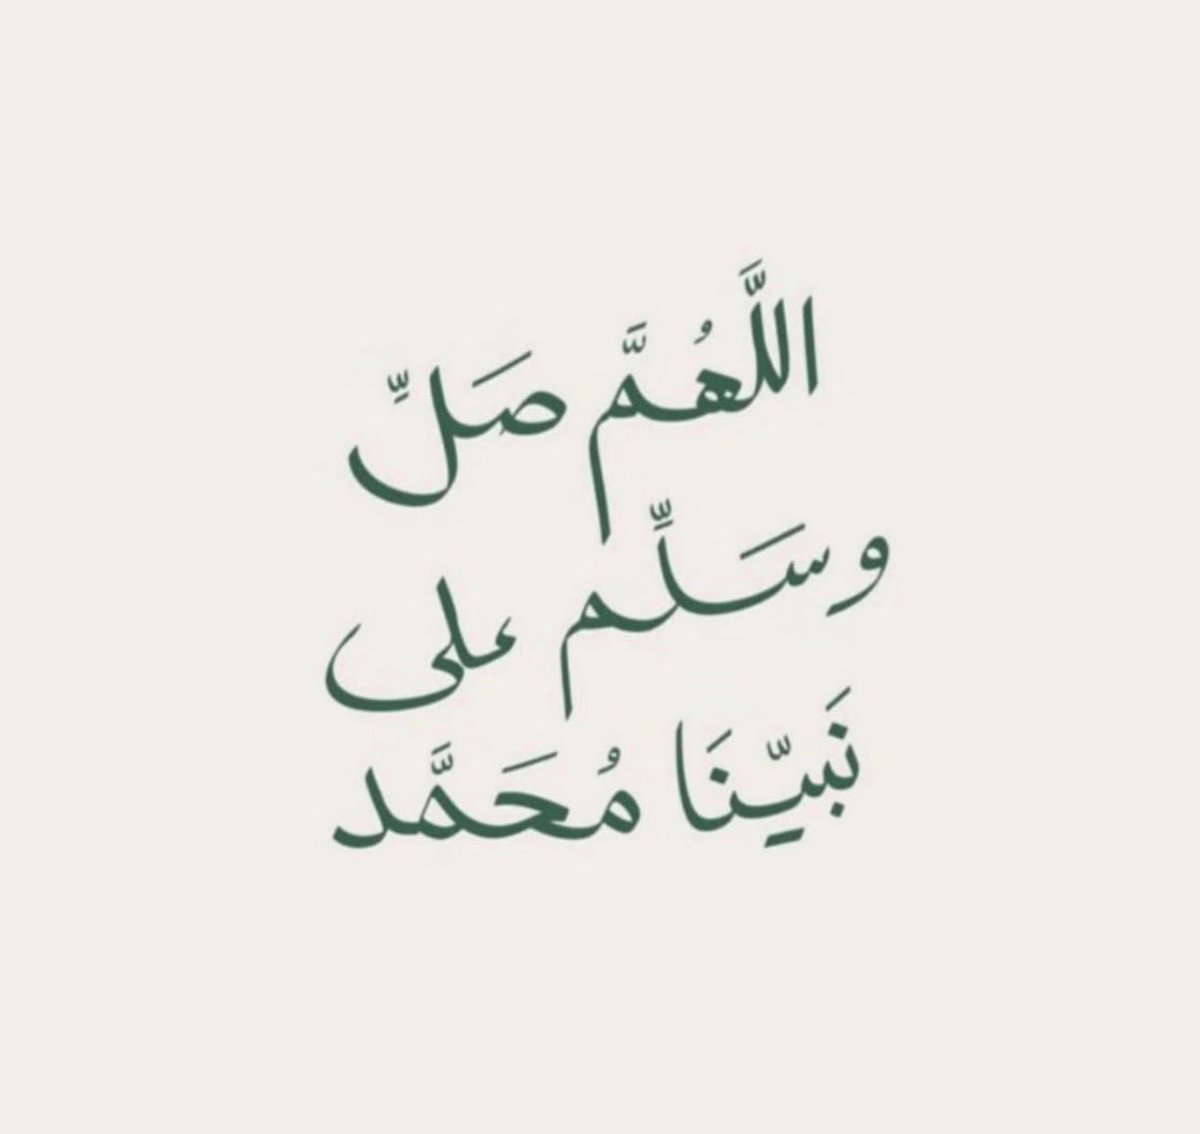 اللَّهُمَّ صَلِّ
وسَلِّم على
نَبيّنَا مُحَمَّد